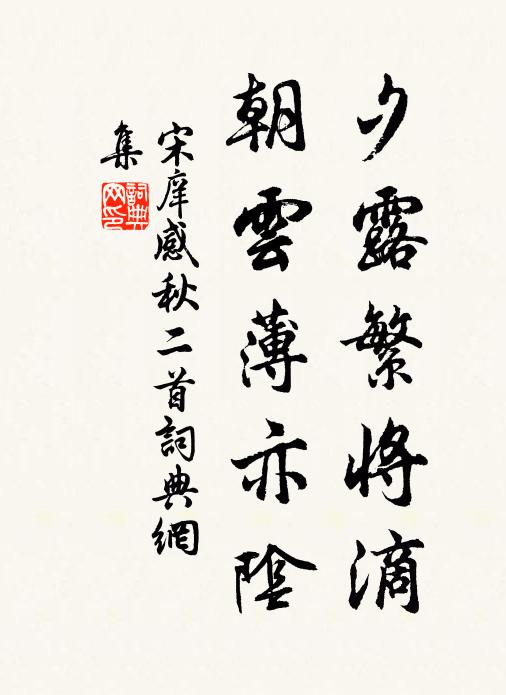 夕露繁將滴
朝雲薄亦陰
宋庠感秋二首詞典網
集
詞典网印